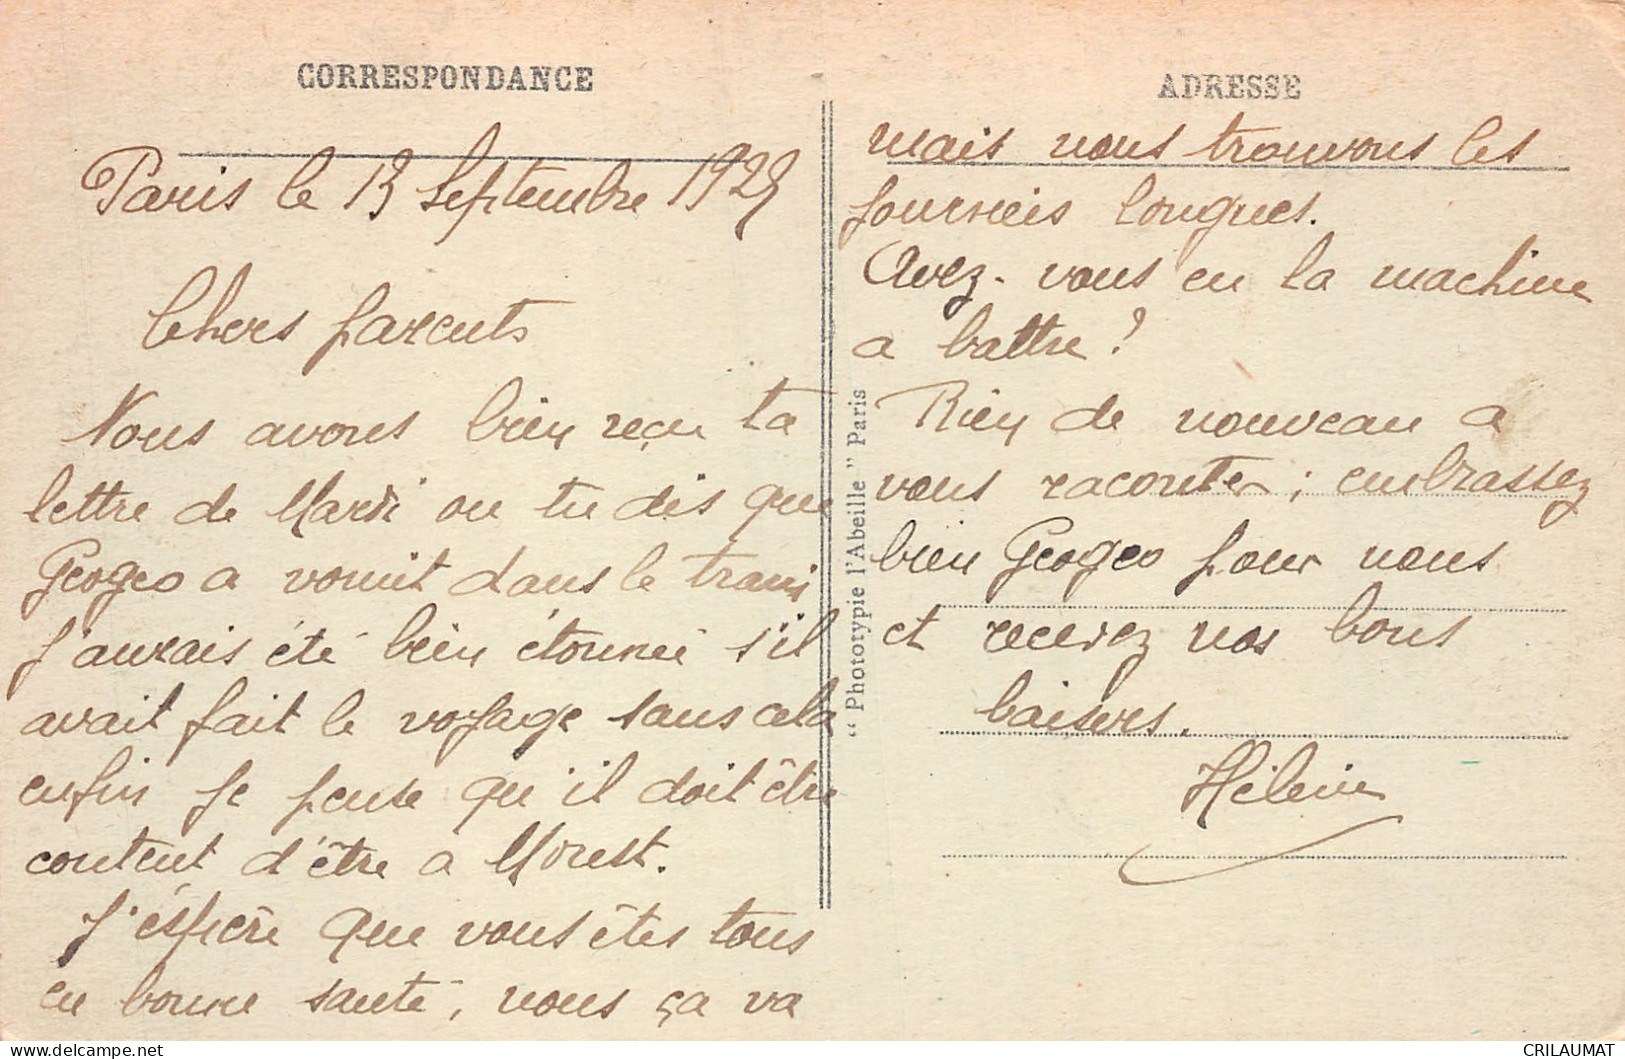 CORRESPONDANCE
Paris le 13 Septembre 192
Chers parents
Nous avons bien reçu ta
lettre de Mardi ou tu dis que
Geogeo a vomit dans le train
j'aurais été bien étonnée s'il
avait fait le voyage sans cela
enfin je pense qu'il doit être
content d'être a Morest.
J'éspère que vous êtes tous
en bonne santé, nous ça va
"Phototypie l'Abeille" Paris
ADRESSE
mais nous trouvons les
journéis longues.
Avez-vous eu la machine
a battre ?
Rien de nouveau a
vous raconter ; embrassez
bien Geogeo pour nous
et recevez nos bons
baisers.
Hélène
CRILAUMAT